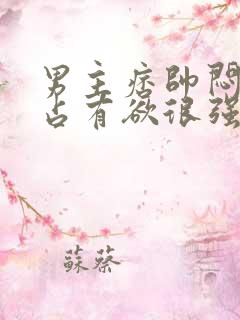 男主痞帥悶
占有欲很强
蘇蔡